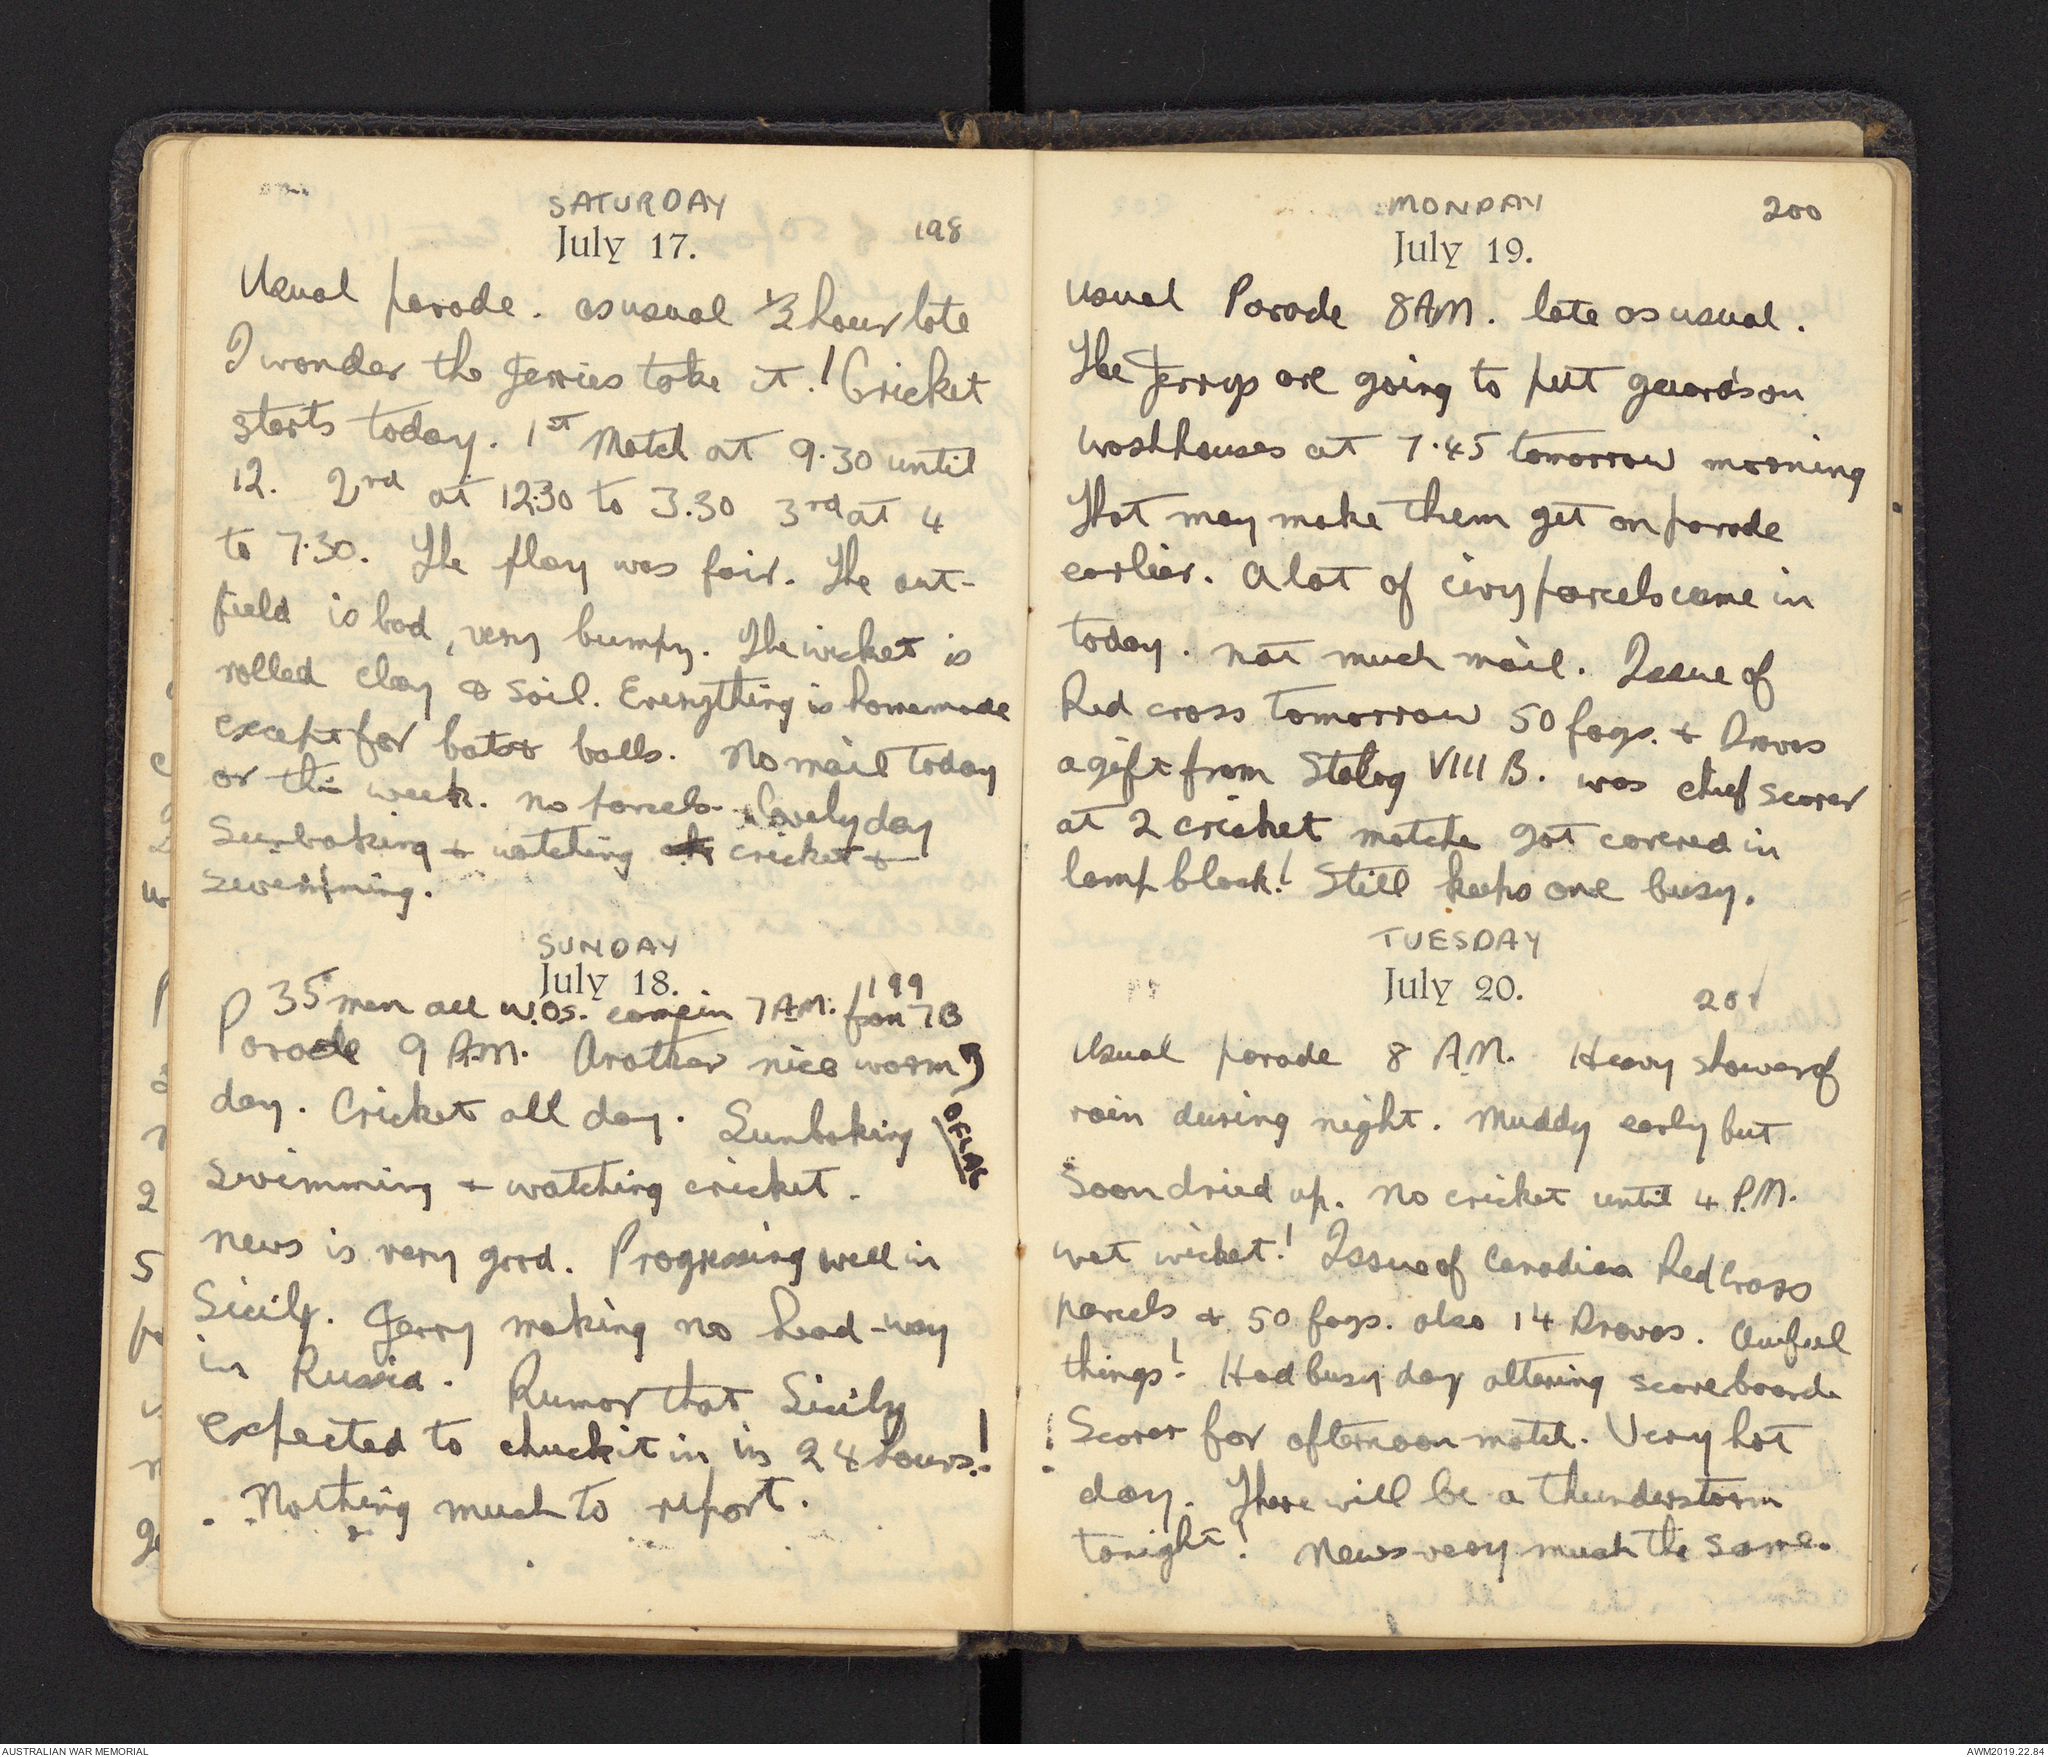 SATURDAY
July 17. 198
Usual parade. as usual 1/2 hour late
I wonder the Jerries take it! Cricket
starts today. 1st Match at 9.30 until
12. 2nd at 12.30 to 3.30 3rd at 4
to 7.30. The play was fair. The out-
field is bad, very bumpy. The wicket is
rolled clay & soil. Everything is homemade
except for bats & balls. No mail today
or this week. No parcels. Lovely day
Sunbaking & watching cricket &
swimming.
SUNDAY
July 18. 199
35 men all W.Os. came in 7 A.M. from 7B
OFLAG
Parade 9 A.M. Another nice warm
day. Cricket all day. Sunbaking
swimming & watching cricket.
News is very good. Progressing well in
Sicily. Jerry making no head-way
in Russia. Rumor that Sicily
expected to chuck it in in 24 hours!
Nothing much to report.
MONDAY
July 19. 200
Usual Parade 8 AM. late as usual.
The Jerrys are going to put guards on
washhouses at 7.45 tomorrow morning
That may make them get on parade
earlier. A lot of civy parcels came in
today. Not much mail. Issue of
Red cross tomorrow 50 fags. & Dravas
a gift from Stalag VIII B. was chief scorer
at 2 cricket matche got covered in
lamp black! Still keeps one busy.
TUESDAY
July 20. 201
Usual parade 8 A.M. Heavy shower of
rain during night. Muddy early but
soon dried up. No cricket until 4 P.M.
wet wicket! Issue of Canadian Red Cross
parcels & 50 fags. also 14 Dravas. Awful
things! Had busy day altering scoreboard.
Scorer for afternoon match. Very hot
day. There will be a thunderstorm
tonight! News very much the same.
AUSTRALIAN WAR MEMORIAL
AWM2019.22.84